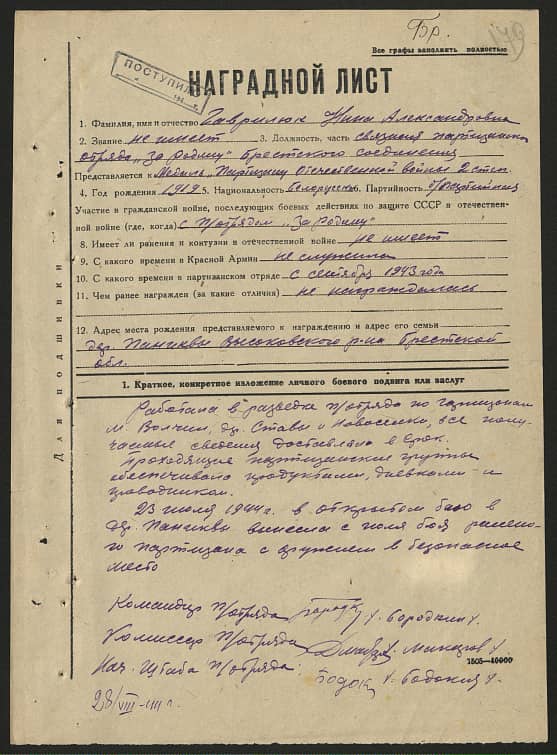 Бр.
Все графы заполнить полностью
ПОСТУПИЛ
НАГРАДНОЙ ЛИСТ
1. Фамилия, имя и отчество Гаврилюк Нина Александровна
2. Звание не имеет 3. Должность, часть связная партизанск.
отряда „За Родину" Брестского соединения
Представляется к Медаль „Партизану Отечественной войны" 2 степ.
4. Год рождения 1919 5. Национальность белорусска 6. Партийность б/партийная
Участие в гражданской войне, последующих боевых действиях по защите СССР в отечествен-
ной войне (где, когда) с П/отрядом „За Родину"
8. Имеет ли ранения и контузии в отечественной войне не имеет
9. С какого времени в Красной Армии не служила
10. С какого времени в партизанском отряде с сентября 1943 года
11. Чем ранее награжден (за какие отличия) не награждалась
12. Адрес места рождения представляемого к награждению и адрес его семьи
др. Паникви Высоковского р-на Брестской
обл.
Для подшивки
1. Краткое, конкретное изложение личного боевого подвига или заслуг
Работала в разведке П/отряда по гарнизонам
м. Волчин, др. Ставы и Новоселки, все полу-
чаемые сведения доставляла в срок.
Проходящие партизанские группы
обеспечивала продуктами, дневками и
проводником.
23 июля 1944 г. в открытом бою в
др. Паникви вынесла с поля боя ранено-
го партизана с оружием в безопасное
место
Командир П/отряда /Бородкин/.
Комиссар П/отряда
Нач. Штаба П/отряда
1505—10000
28/VIII-44 г.